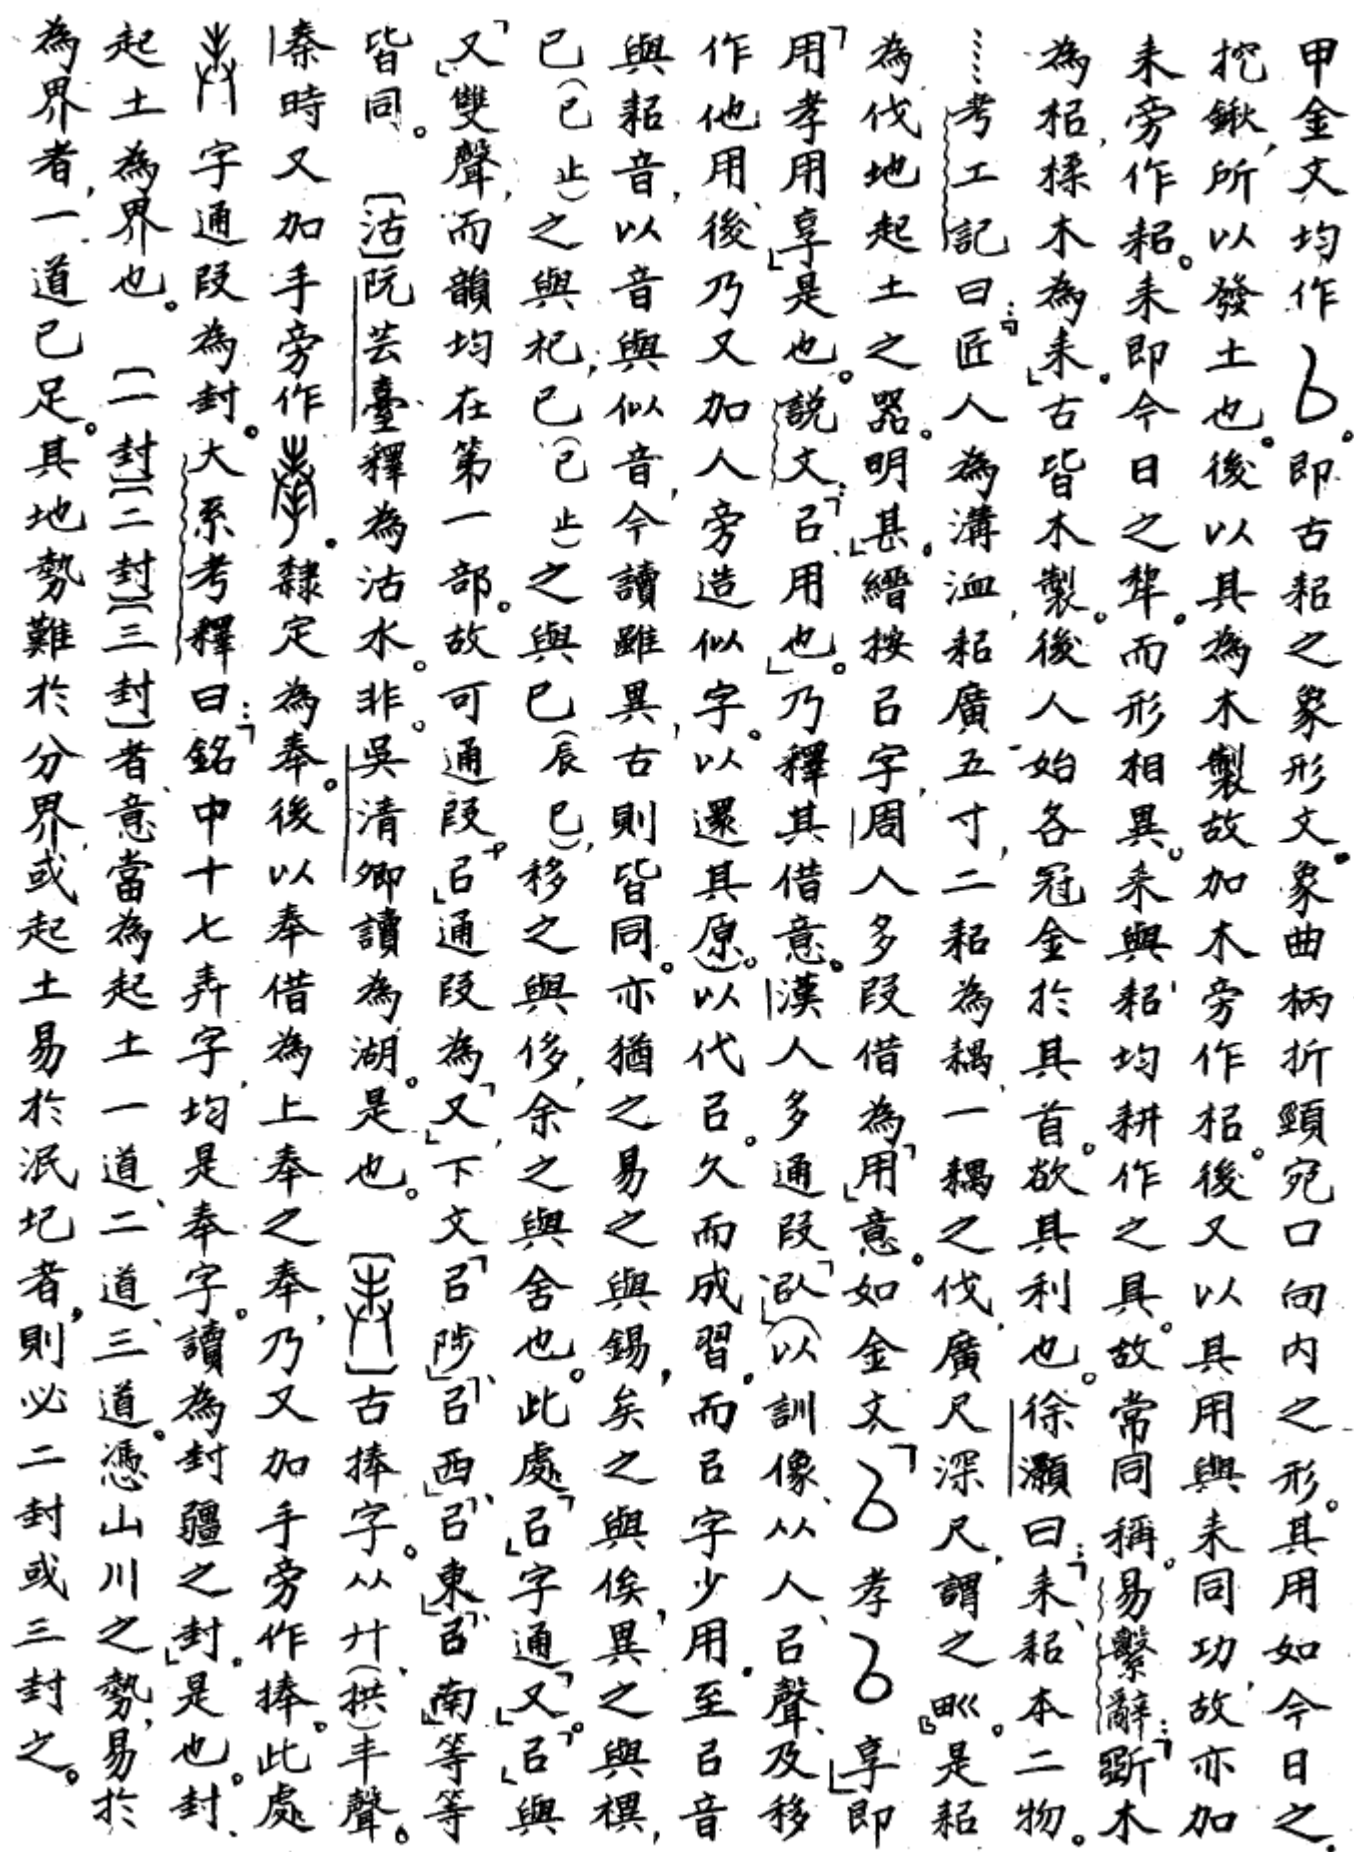 甲金文均作。即古耜之象形文。象曲柄折頸宛口向内之形。其用如今日之
挖鍬，所以發土也。後以其為木製故加木旁作梠。後又以其用與耒同功，故亦加
耒旁作耜。耒即今日之犂。而形相異。耒與耜、均耕作之具。故常同稱。易繫辭：「斲木
為梠，揉木為耒」。古皆木製。後人始各冠金於其首。欲其利也。徐灝曰：「耒、耜本二物。
……考工記曰：「匠人為溝洫，耜廣五寸，二耜為耦，一耦之伐，廣尺深尺，謂之𤰝」。是耜
為伐地起土之器。明甚」。縉按㠯字，周人多叚借為「用」意。如金文「孝享」即
「用孝用享」是也。説文：「㠯用也」。乃釋其借意。漢人多通叚「㠯」（以訓像、从人、㠯聲、及移
作他用、後乃又加人旁造似字。以還其原。）以代㠯。久而成習。而㠯字少用。至㠯音
與耜音，以音與似音，今讀雖異，古則皆同。亦猶之易之與錫，矣之與俟，異之與禩，
已（已止）之與杞，已（已止）之與巳（辰巳），移之與侈，余之與舍也。此處「㠯」字通「又」。「㠯」與
「又」雙聲，而韻均在第一部。故可通叚。「㠯」通叚為「又」，下文「㠯陟」、「㠯西」、「㠯東」、「㠯南」等等
皆同。　［沽］阮芸臺釋為沽水。非。吳清卿讀為湖。是也。　［］古捧字。从廾（拱）丰聲。
秦時又加手旁作。隸定為奉。後以奉借為上奉之奉，乃又加手旁作捧。此處
字通叚為封。大系考釋曰：「銘中十七弄字，均是奉字。讀為封疆之封」。是也。封、
起土為界也。　［一封］［二封］［三封］者、意當為起土一道、二道、三道。憑山川之勢，易於
為界者，一道已足。其地勢難於分界，或起土易於泯圮者，則必二封或三封之。